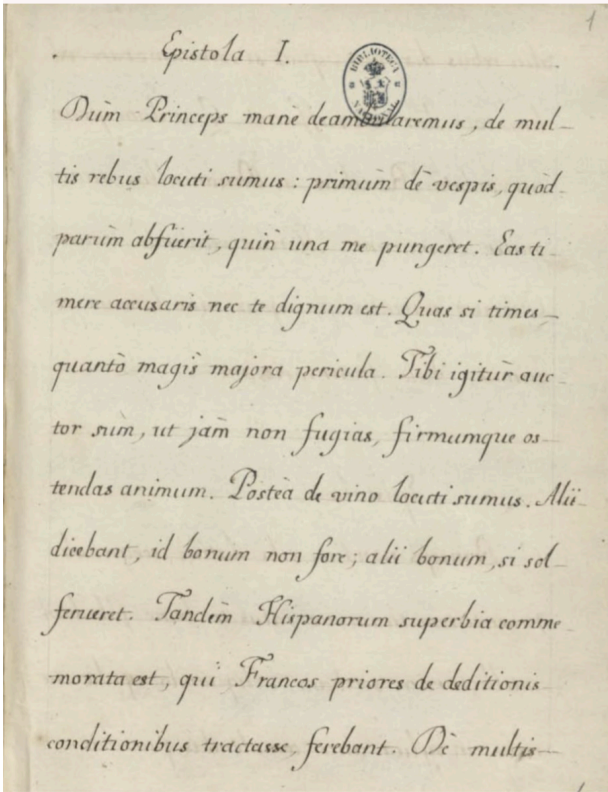 1
Epistola I.
BIBLIOTECA
NACIONAL
Dùm Princeps manè deambularemus, de mul-
tis rebus locuti sumus: primùm dè vespis, quòd
parùm abfùerit, quin una me pungeret. Eas ti-
mere accusaris nec te dignum est. Quas si times-
quantò magis majora pericula. Tibi igitùr auc-
tor sùm, ut jàm non fugias, firmumque os-
tendas animum. Posteà de vino locuti sumus. Alii
dicebant, id bonum non fore; alii bonum, si sol-
ferveret. Tandèm Hispanorum superbia comme-
morata est, qui Francos priores de deditionis
conditionibus tractasse, ferebant. Dè multis-